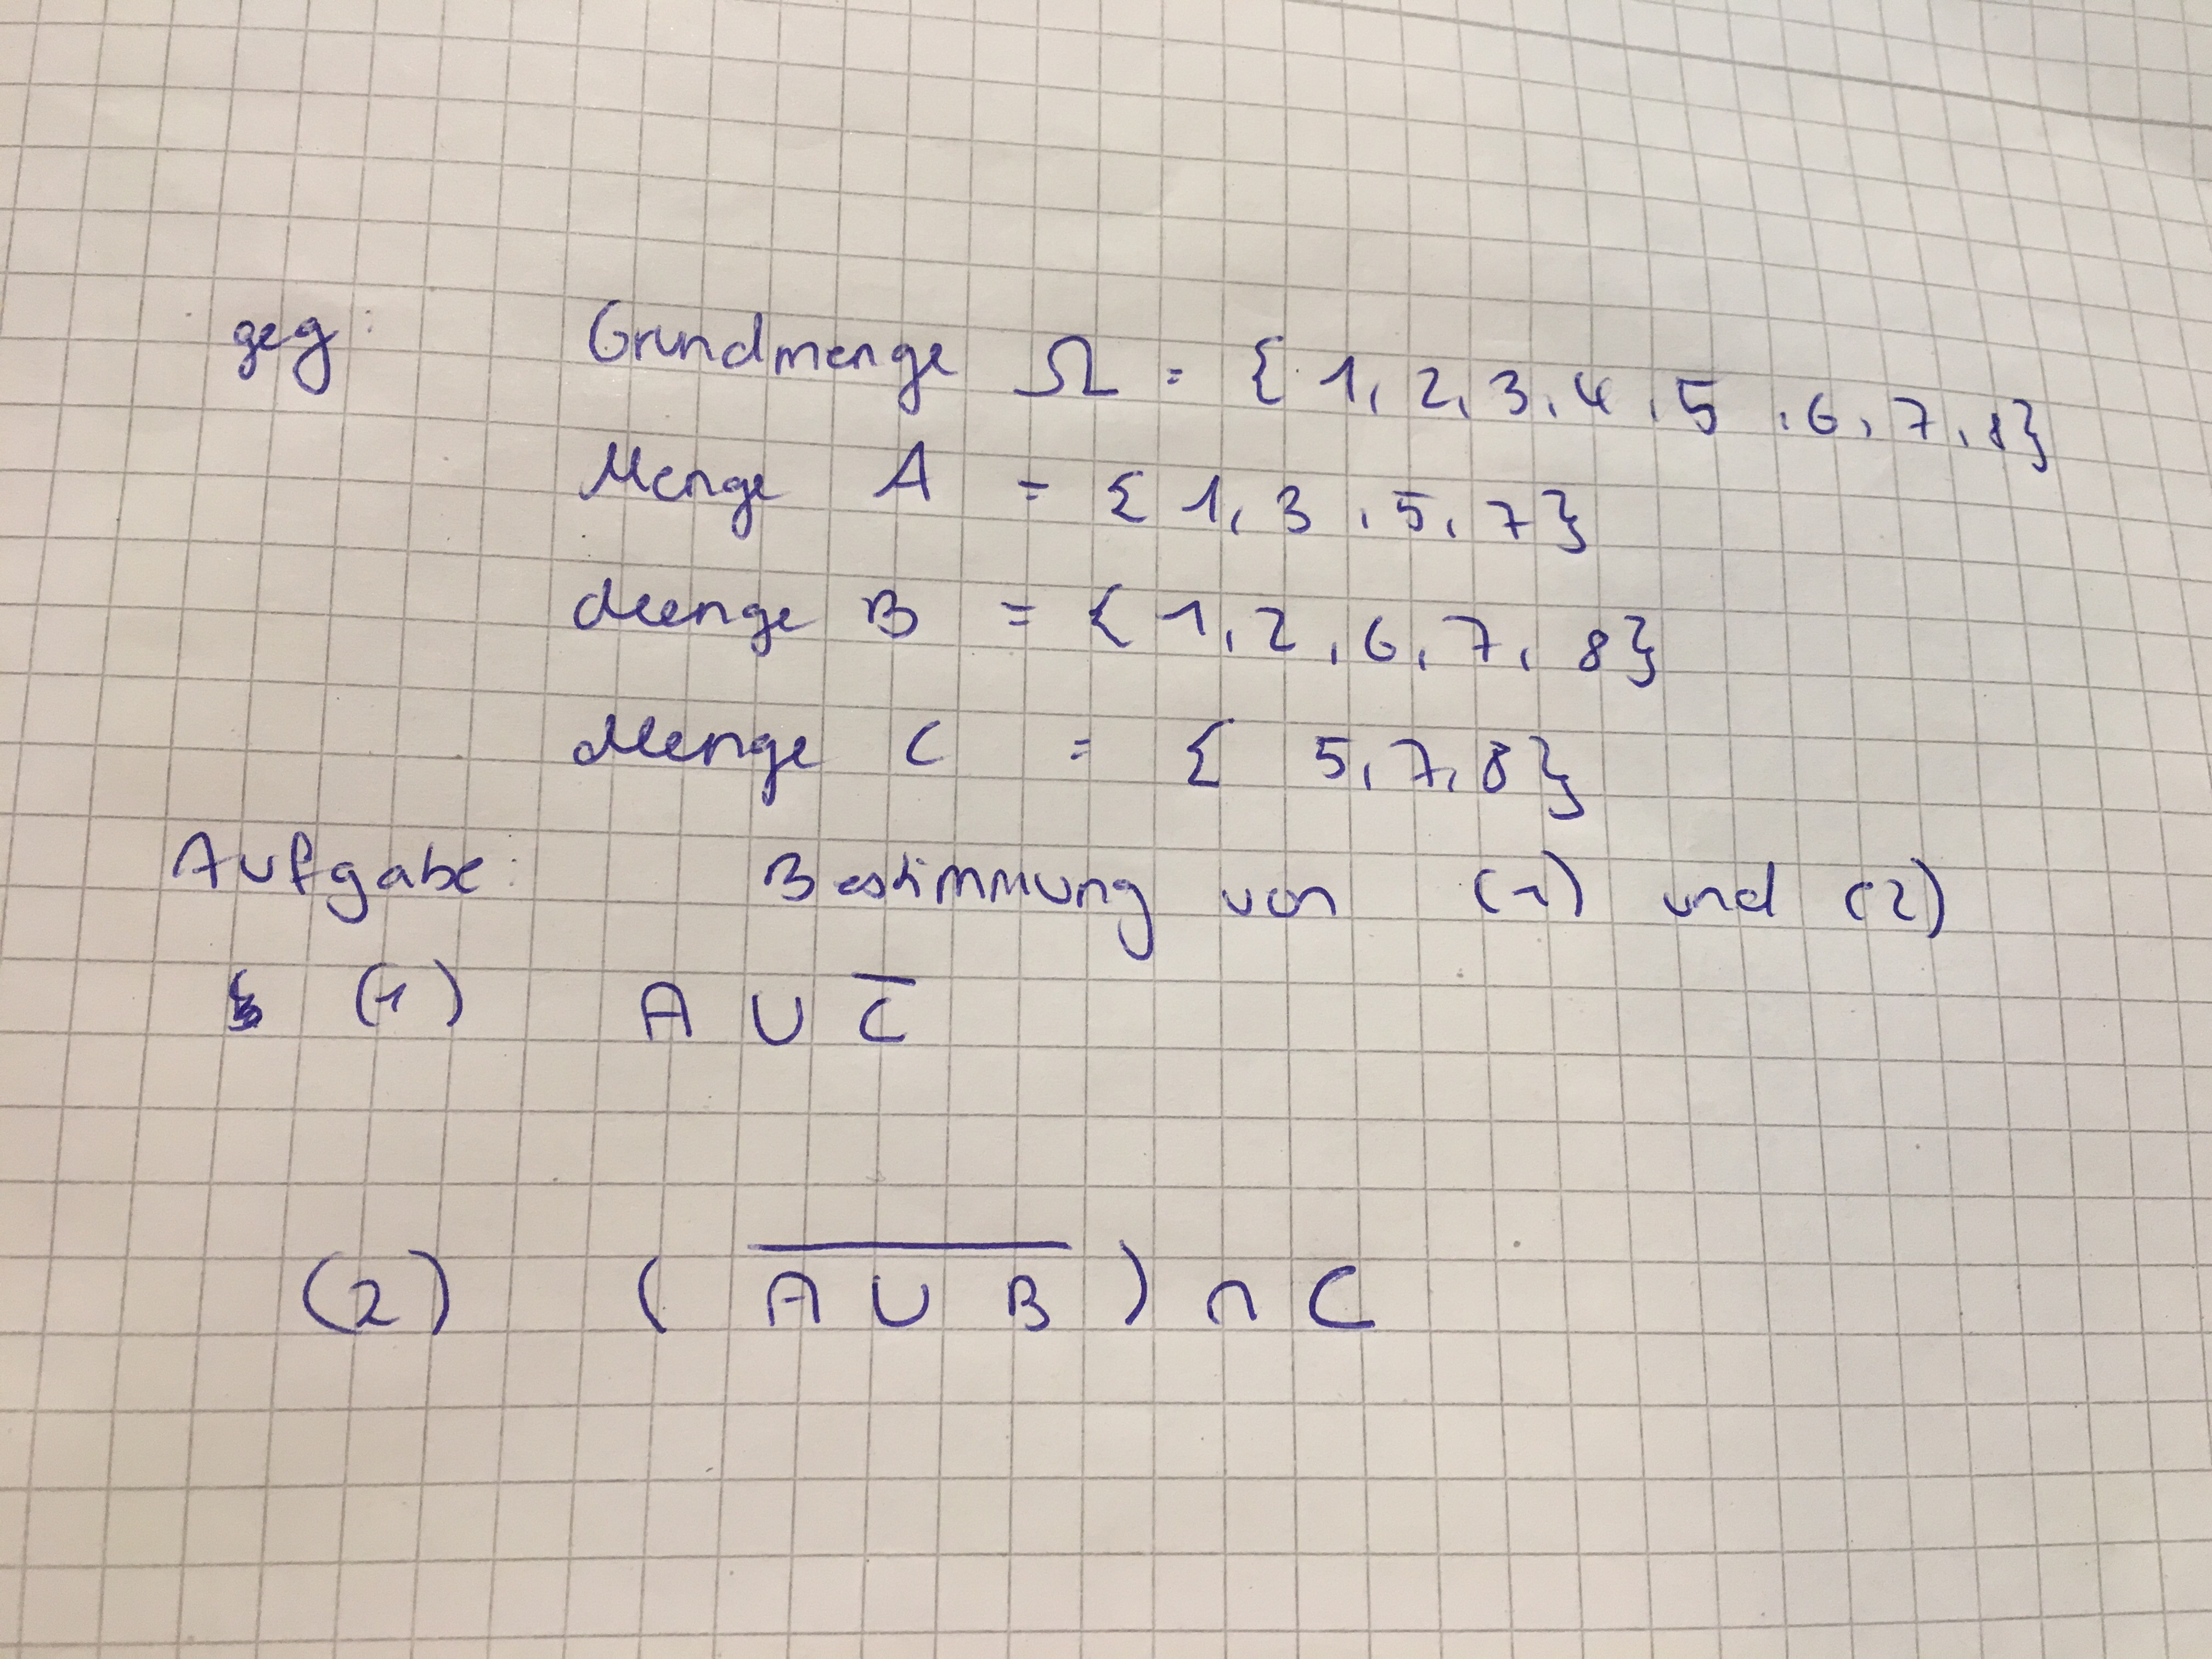 geg: Grundmenge Ω = { 1, 2, 3, 4, 5, 6, 7, 8}
Menge A = { 1, 3, 5, 7}
Menge B = { 1, 2, 6, 7, 8}
Menge C = { 5, 7, 8}
Aufgabe: Bestimmung von (1) und (2)
(1) A ∪ C̅
(2) ( A̅ ̅∪̅ ̅B̅ ) ∩ C